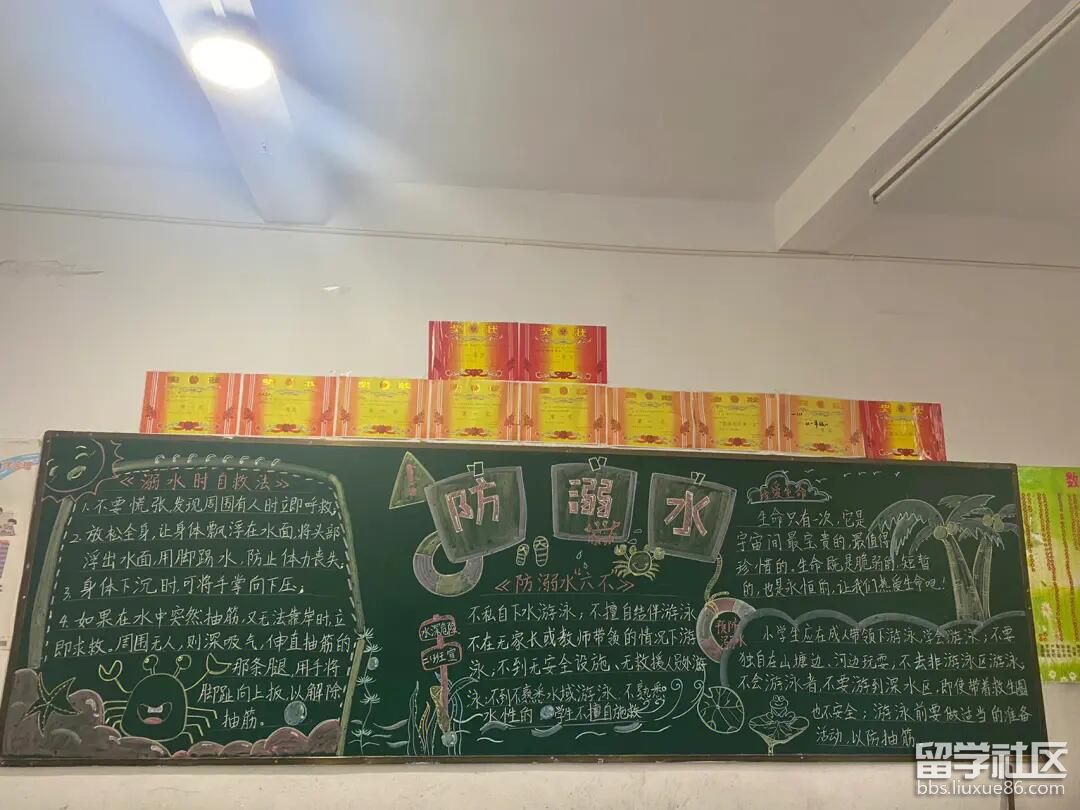 奖状
奖状
《溺水时自救法》
1.不要慌张发现周围有人时立即呼救;
2.放松全身,让身体飘浮在水面,将头部
浮出水面,用脚踢水,防止体力丧失;
3.身体下沉时,可将手掌向下压;
4.如果在水中突然抽筋,又无法靠岸时,立
即求救。周围无人,则深吸气,伸直抽筋的
那条腿,用手将
脚趾向上扳,以解除
抽筋。
防溺水
《防溺水六不》
不私自下水游泳,不擅自结伴游泳
不在无家长或教师带领的情况下游
泳,不到无安全设施、无救援人员水游
泳,不到不熟悉水域游泳,不熟悉
水性的学生不擅自施救
水深危险
珍爱生命
生命只有一次,它是
宇宙间最宝贵的,最值得
珍惜的。生命既是脆弱的,短暂
的,也是永恒的,让我们热爱生命吧!
预防
小学生应在成人带领下游泳,学会游泳,不要
独自在山塘边、河边玩耍,不去非游泳区游泳
不会游泳者,不要游到深水区,即使带着救生圈
也不安全;游泳前要做适当的准备
活动,以防抽筋
数
留学社区
bbs.liuxue86.com